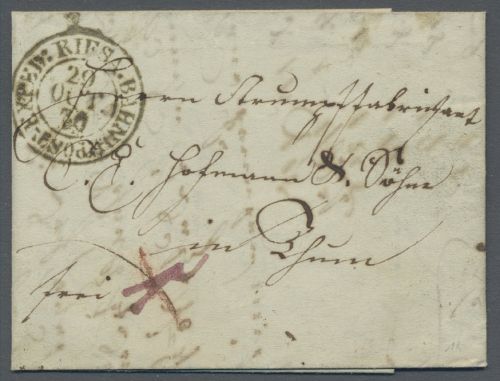 EXPED: RIESA BAHNHOF
29
OCT
Herrn Strumpffabrikant
C. E. Hofmann & Söhne
in Thum
frei